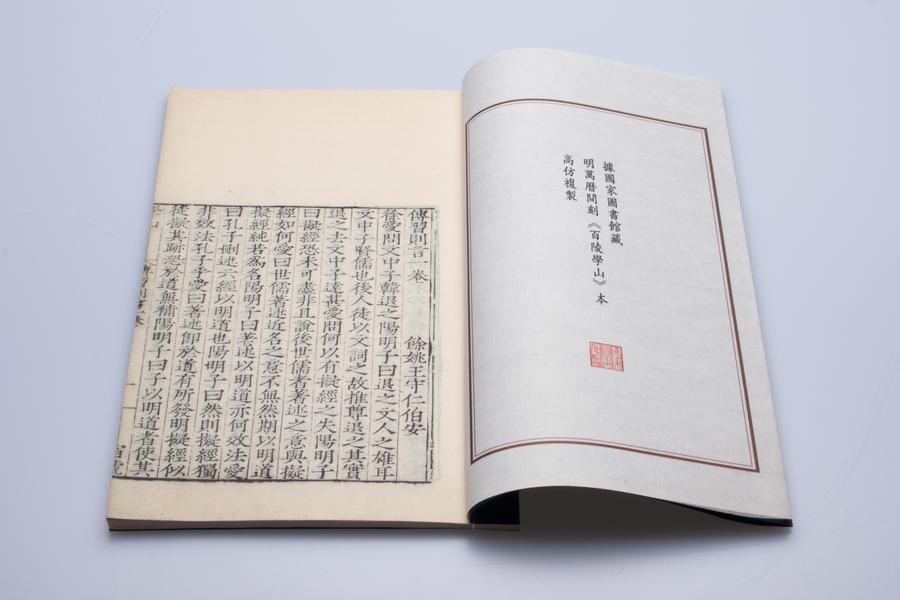 據國家圖書館藏
明萬曆間刻《百陵學山》本
高仿複製
傳習則言一卷 餘姚王守仁伯安
徐愛問文中子韓退之陽明子曰退之文人之雄耳
文中子賢儒也後人徒以文詞之故推尊退之其實
退之去文中子遠甚愛問何以有擬經之失陽明子
曰擬經恐未可盡非且說後世儒者著述之意與擬
經如何愛曰世儒著述近名之意不無然期以明道
擬經純若為名陽明子曰著述以明道亦何效法愛
曰孔子刪述六經以明道也陽明子曰然則擬經獨
非效法孔子乎愛曰著述即於道有所發明擬經似
徒擬其跡恐於道無補陽明子曰子以明道者使其